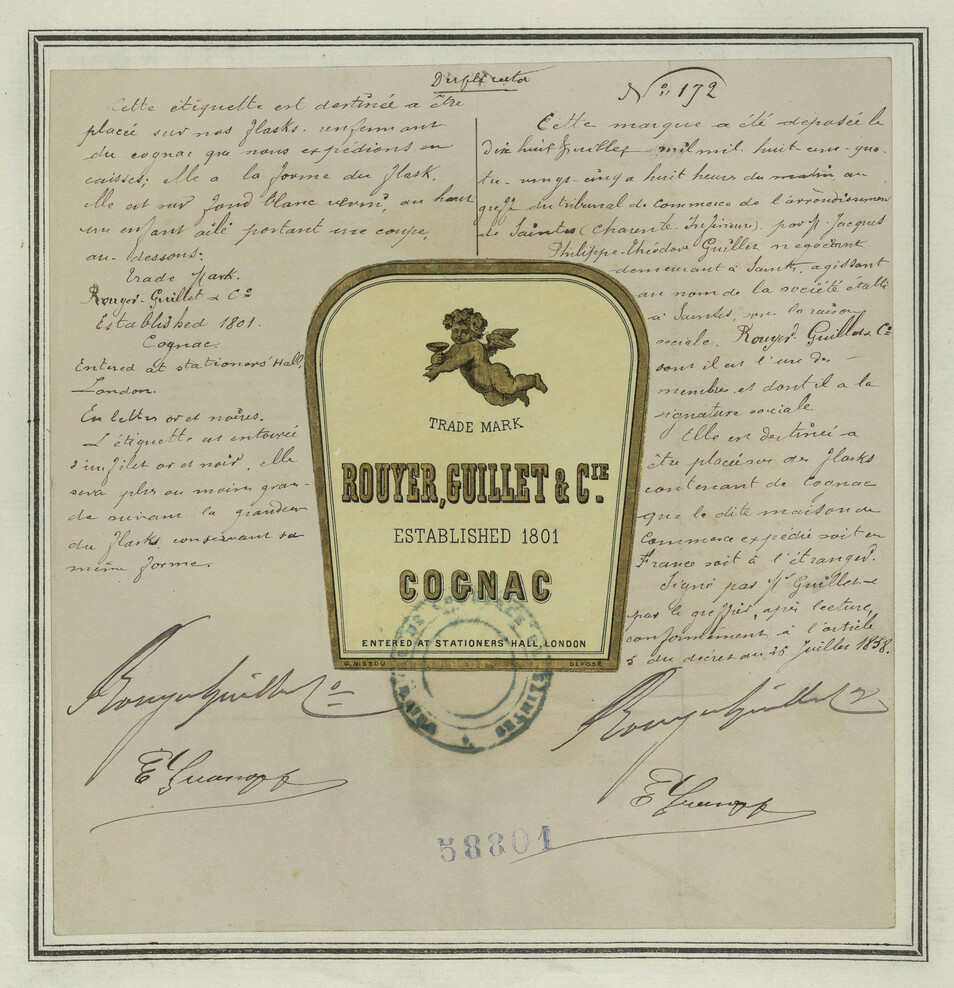 Duplicata
Cette étiquette est destinée a être
placée sur nos flasks renfermant
du cognac que nous expédions en
caisses; elle a la forme du flask.
elle est sur fond blanc verni, au haut
un enfant ailé portant une coupe,
au-dessous:
Trade Mark.
Rouyer-Guillet & Co
Established 1801.
Cognac.
Entered at stationers' Hall,
London.
En lettres or et noires.
L'étiquette est entourée
d'un filet or et noir, elle
sera plus ou moins gran-
de suivant la grandeur
du flask, conservant sa
même forme.
Rouyer Guillet Co
No. 172
Cette marque a été déposée le
dix huit Juillet mil mil huit-cent-qua-
tre-vingt-cinq a huit heures du matin, au
greffe du tribunal de commerce de l'arrondissement
de Saintes (Charente-Inférieure), par M. Jacques
Philippe-Théodore Guillet negociant
demeurant à Saintes, agissant
au nom de la société établie
à Saintes, sous la raison
sociale, Rouyer Guillet & Co
dont il est l'un des
membres et dont il a la
signature sociale.
Elle est destinée a
être placée sur des flasks
contenant de Cognac
que le dite maison de
Commerce expédie soit en
France soit à l'étranger.
Signé par Mr Guillet e
par le greffier, après lecture,
conformément à l'article
5 du décret du 26 Juillet 1858.
Rouyer Guillet Co
TRADE MARK
ROUYER, GUILLET & CIE.
ESTABLISHED 1801
COGNAC
ENTERED AT STATIONERS' HALL, LONDON
G. NISSOU DÉPOSÉ
58801